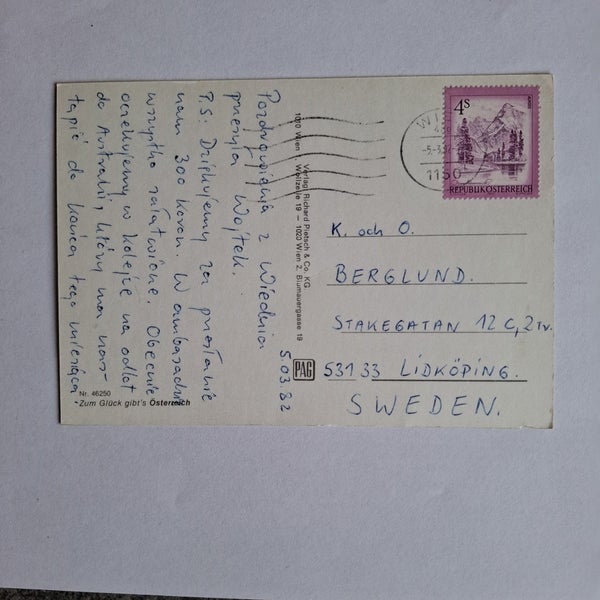 Pozdrowienia z Wiednia
przesyła Wojtek.
5.03.82
P.S: Dziękujemy za przesłanie
nam 300 koron. W ambasadzie
wszystko załatwione. Obecnie
oczekujemy w kolejce na odlot
do Australii, który ma nas-
tąpić do końca tego miesiąca.
Nr. 46250
Zum Glück gibt's Österreich
Verlag Richard Pietsch & Co. KG
1010 Wien 1, Wollzeile 19 – 1020 Wien 2, Blumauergasse 19
PAG
4S
REPUBLIK ÖSTERREICH
-5.-3.82
1150
K. och O.
BERGLUND.
STAKEGATAN 12 C, 2 TV.
531 33 LIDKÖPING.
SWEDEN.